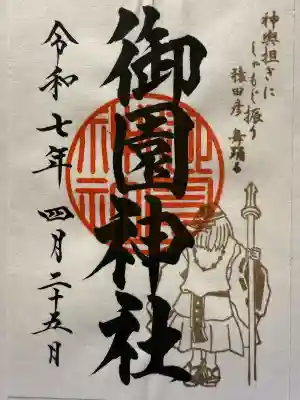 神輿担ぎに
しゃもじ振り
猿田彦 舞踊る
御園神社
令和七年 四月二十五月